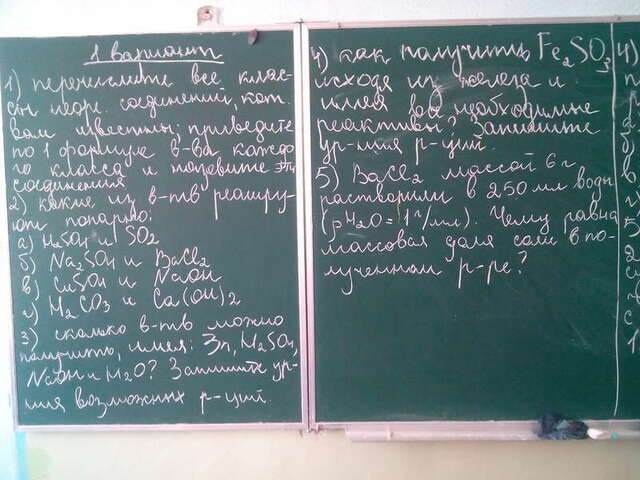 1 вариант
1) перечислите все клас-
сы неорг. соединений, кот.
вам известны; приведите
по 1 формуле в-ва каждо
го класса и назовите эти
соединения
2) какие из в-тв реагиру-
ют попарно:
а) H2SO4 и SO2
б) Na2SO4 и BaCl2
в) CuSO4 и NaOH
г) H2CO3 и Ca(OH)2
3) сколько в-тв можно
получить, имея: Zn, H2SO4,
NaOH и H2O? Запишите ур-
ния возможных р-ций.
4) как получить Fe2SO3
исходя из железа и
имея все необходимые
реактивы? Запишите
ур-ния р-ций.
5) BaCl2 массой 6 г
растворили в 250 мл воды
(ρH2O=1 г/мл). Чему равна
массовая доля соли в по-
лученном р-ре?
4)